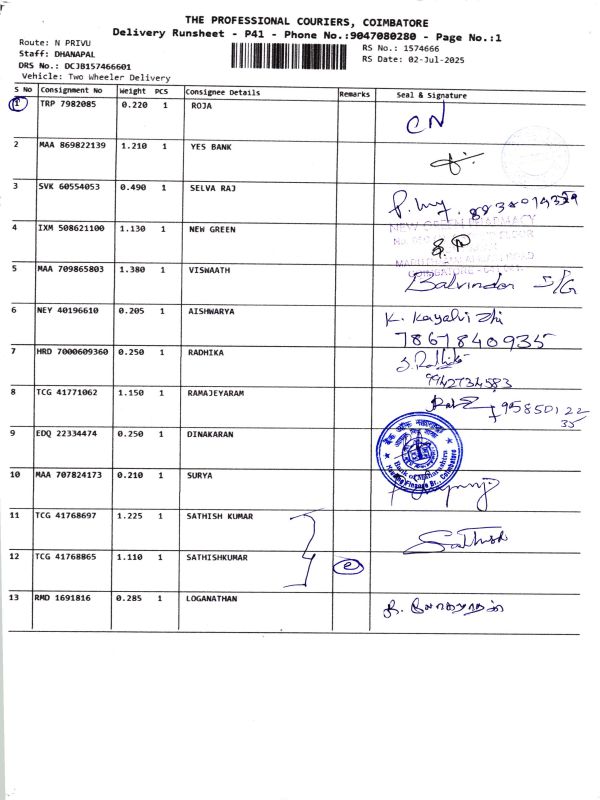 THE PROFESSIONAL COURIERS, COIMBATORE
Delivery Runsheet - P41 - Phone No.:9047080280 - Page No.:1
Route: N PRIVU
Staff: DHANAPAL
DRS No.: DCJB157466601
Vehicle: Two Wheeler Delivery
RS No.: 1574666
RS Date: 02-Jul-2025
S No Consignment No Weight PCS Consignee Details Remarks Seal & Signature
1 TRP 7982085 0.220 1 ROJA CN
2 MAA 869822139 1.210 1 YES BANK
3 SVK 60554053 0.490 1 SELVA RAJ
4 IXM 508621100 1.130 1 NEW GREEN
NEW GREEN PHARMACY
5 MAA 709865803 1.380 1 VISWAATH Balvinder S/G
6 NEY 40196610 0.205 1 AISHWARYA K. Kayalvizhi
7867840935
7 HRD 7000609360 0.250 1 RADHIKA S. Radhika
9942734583
8 TCG 41771062 1.150 1 RAMAJEYARAM 95850122
35
9 EDQ 22334474 0.250 1 DINAKARAN
बैंक ऑफ महाराष्ट्र
Bank of Maharashtra
Housing Finance Br., Coimbatore
10 MAA 707824173 0.210 1 SURYA
11 TCG 41768697 1.225 1 SATHISH KUMAR Sathish
12 TCG 41768865 1.110 1 SATHISHKUMAR e
13 RMD 1691816 0.285 1 LOGANATHAN